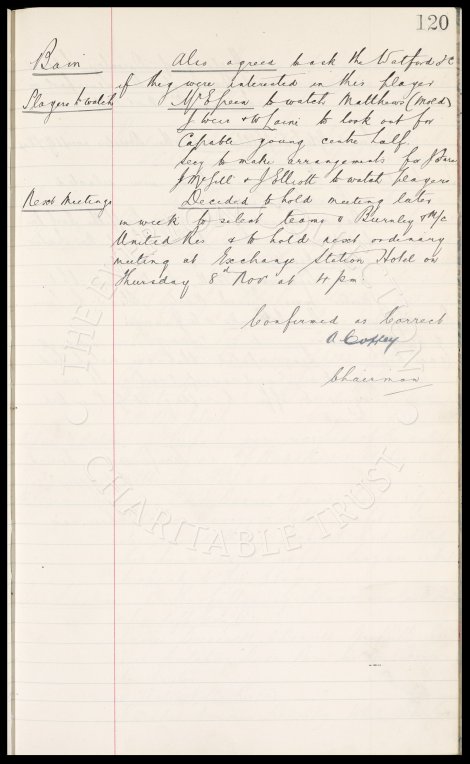 120
Bain Also agreed to ask the Watford F C
if they were interested in this player
Players to watch Mr to watch Matthews (Mold)
J Weir & W Laine to look out for
Capable young centre half.
Secy to make arrangements for J
J McGill & J Elliott to watch players
Next Meeting Decided to hold meeting later
in week to select teams v Burnley & M/c
United Res & to hold next ordinary
meeting at Exchange Station Hotel on
Thursday 8th Nov at 4 pm
Confirmed as Correct
A Coffey
Chairman
THE CHARITABLE TRUST